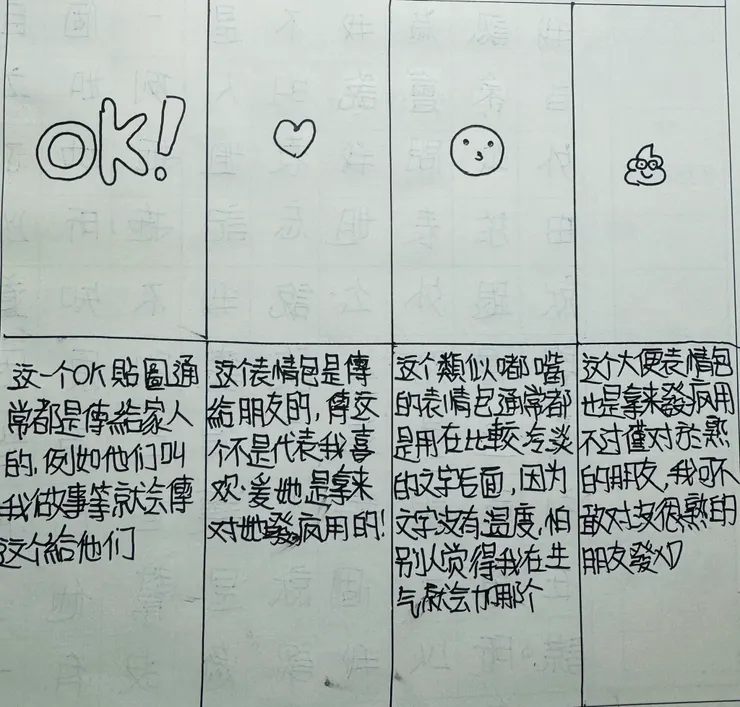 OK!
这一个OK貼圖通
常都是傳給家人
的,例如他们叫
我做事等就会傳
这个給他们
这个表情包是傳
給朋友的,傳这
个不是代表我喜
欢·爱她,是拿来
对她發疯用的!
这个類似嘟嘴
的表情包通常都
是用在比較冷淡
的文字后面,因为
文字没有温度,怕
别人觉得我在生
气就会加那个
这个大便表情包
也是拿来發疯用
不过僅对於熟
的朋友,我可不
敢对没很熟的
朋友發XD